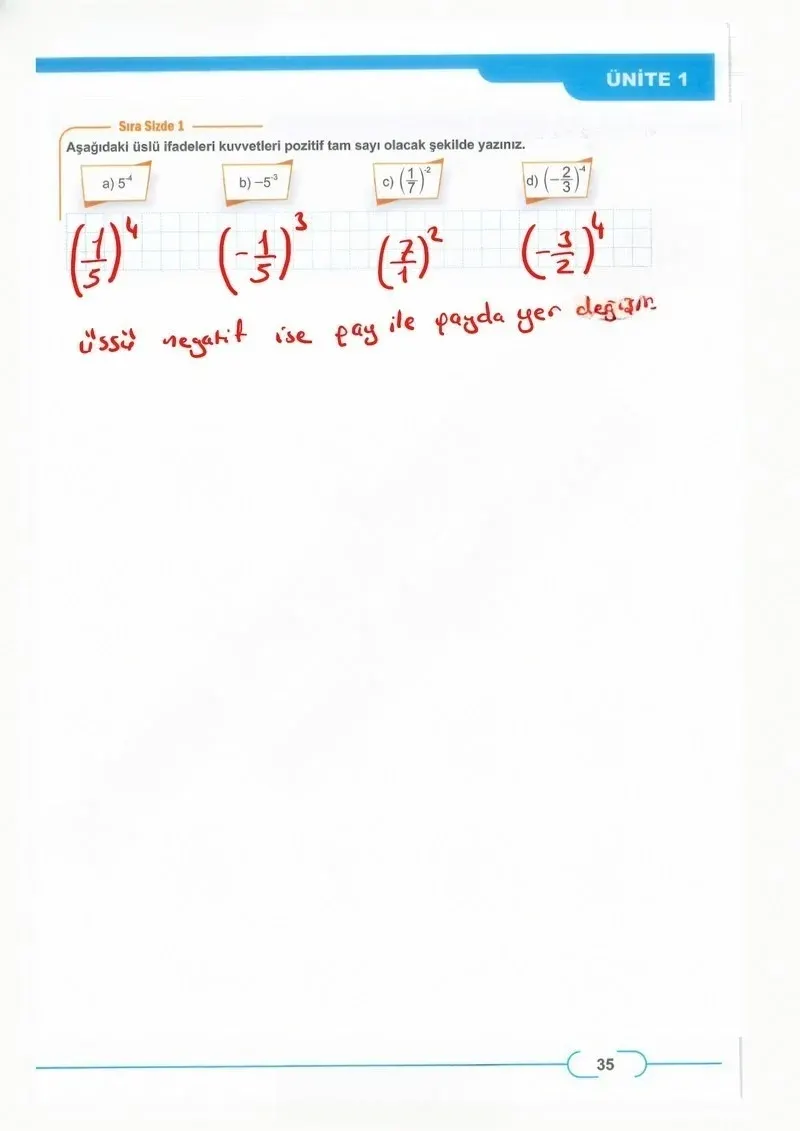 ÜNİTE 1
Sıra Sizde 1
Aşağıdaki üslü ifadeleri kuvvetleri pozitif tam sayı olacak şekilde yazınız.
a) 5⁻⁴ b) −5⁻³ c) (1/7)⁻² d) (−2/3)⁻⁴
(1/5)⁴ (-1/5)³ (7/1)² (-3/2)⁴
üssü negatif ise pay ile payda yer
35